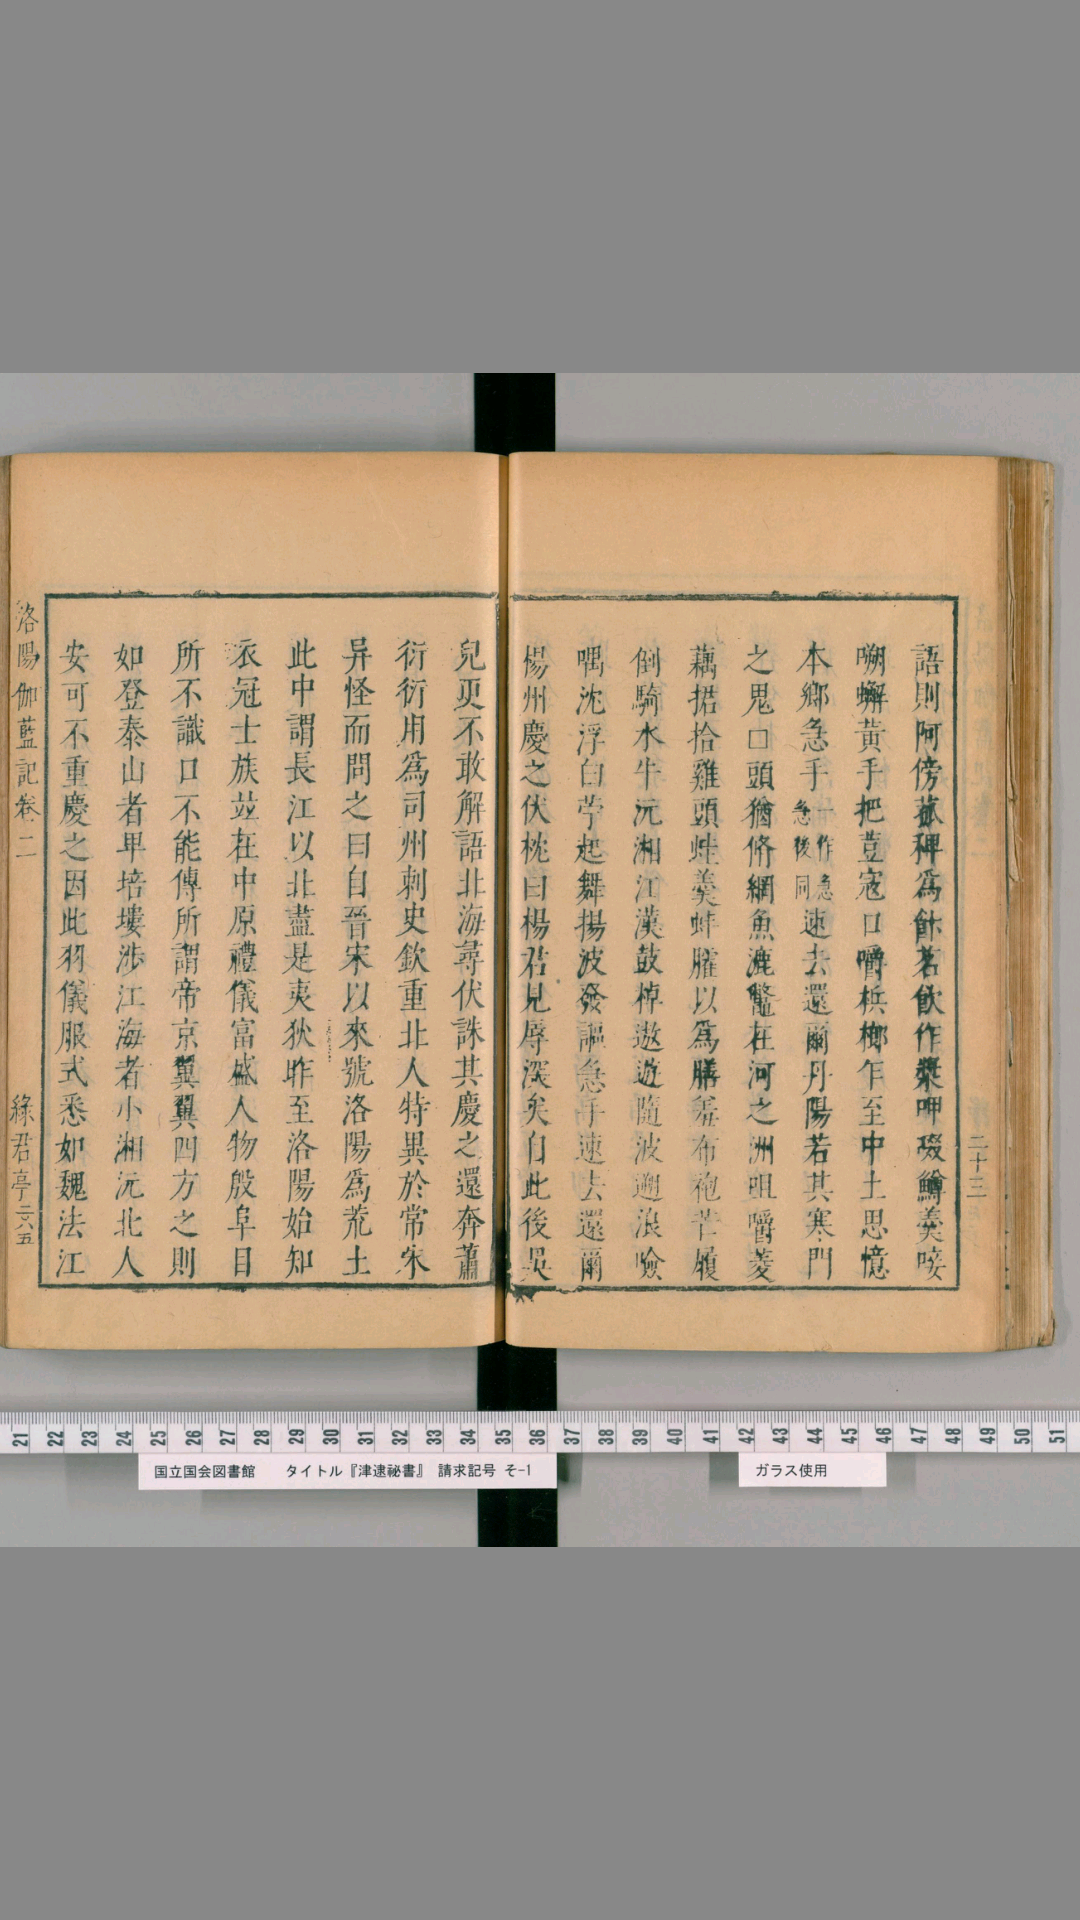 語則阿傍菰稗爲飰茗飲作漿呷啜鱒羹唼
嗍蠏黃手把荳寇口嚼梹榔乍至中土思憶
本鄉急手急後同作急速去還爾丹陽若其寒門
之鬼□頭猶脩網魚漉鼈在河之洲咀嚼菱
藕捃拾雞頭蛙羹蚌臛以爲膳羞布袍芒履
倒騎水牛沅湘江漢鼓棹遨遊隨波遡浪噞
喁沈浮白苧起舞揚波發謳急手速去還爾
楊州慶之伏枕曰楊君見辱深矣自此後吳
兒更不敢解語北海尋伏誅其慶之還奔蕭
衍衍用爲司州刺史欽重北人特異於常朱
异怪而問之曰自晉宋以來號洛陽爲荒土
此中謂長江以北盡是夷狄昨至洛陽始知
衣冠士族竝在中原禮儀富盛人物殷阜目
所不識口不能傳所謂帝京翼翼四方之則
如登泰山者卑培塿涉江海者小湘沅北人
安可不重慶之因此羽儀服式悉如魏法江
洛陽伽藍記卷二
綠君亭
二十三
21 22 23 24 25 26 27 28 29 30 31 32 33 34 35 36 37 38 39 40 41 42 43 44 45 46 47 48 49 50 51
国立国会図書館 タイトル『津逮祕書』 請求記号 そ-1
ガラス使用